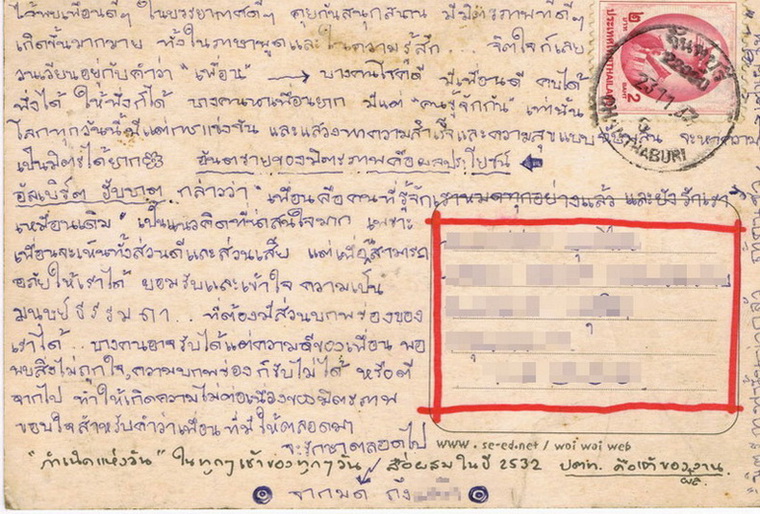 ได้พบเพื่อนดีๆ ในบรรยากาศดีๆ คุยกันสนุกสนาน มีมิตรภาพที่ดีๆ
เกิดขึ้นมากมาย ทั้งในภาษาพูดและในความรู้สึก... จิตใจก็เลย
วนเวียนอยู่กับคำว่า "เพื่อน" → บางคนโชคดี มีเพื่อนดี คบได้
พึ่งได้ ให้พึ่งก็ได้ บางคนหาเพื่อนยาก มีแต่ "คนรู้จักกัน" เท่านั้น
โลกทุกวันนี้มีแต่การแข่งขัน และแสวงหาความสำเร็จและความสุขแบบ จะหาความ
เป็นมิตรได้ยาก อันตรายของมิตรภาพคือผลประโยชน์
อัลเบิร์ต ฮับบาด กล่าวว่า "เพื่อนคือคนที่รู้จักเราหมดทุกอย่างแล้ว และยังรักเรา
เหมือนเดิม" เป็นแนวคิดที่น่าสนใจมาก เพราะ
เพื่อนจะเห็นทั้งส่วนดีและส่วนเสีย แต่เพื่อนสามารถ
อภัยให้เราได้ ยอมรับและเข้าใจ ความเป็น
มนุษย์ธรรมดา.. ที่ต้องมีส่วนบกพร่องของ
เราได้.. บางคนอาจรับได้แต่ความดีของเพื่อน พอ
พบสิ่งไม่ถูกใจ, ความบกพร่อง ก็รับไม่ได้ หรือตี
จากไป ทำให้เกิดความไม่ต่อเนื่องของมิตรภาพ
ขอบใจสำหรับคำว่าเพื่อนที่มีให้ตลอดมา
จะรักษาตลอดไป
www.se-ed.net/woi woi web
"กำเนิดแห่งวัน" ในทุกๆ เช้าของทุกๆ วัน / สื่อผสมในปี 2532 ปตท. คือเจ้าของงาน
จากมด ถึง
๒ บาท
ประเทศไทย THAILAND
2 BAHT
จันทบุรี
22000
23.11
CHANTHABURI